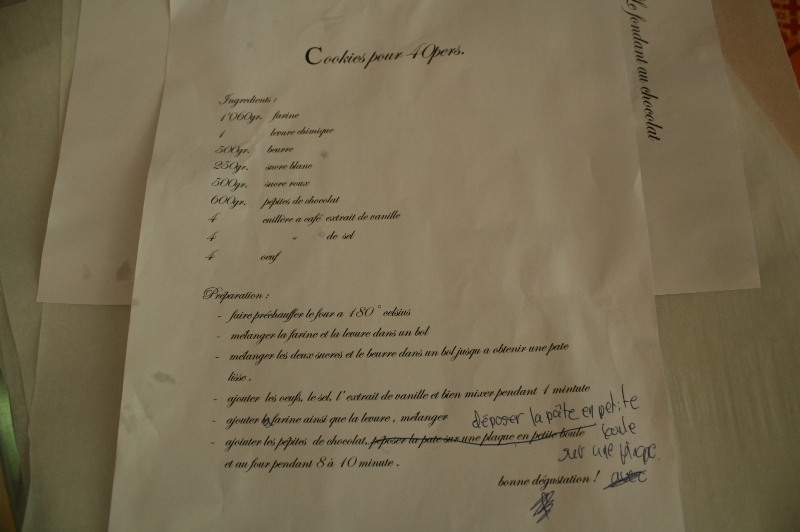 Le fondant au chocolat
Cookies pour 40pers.
Ingredients :
1'060gr. farine
1 levure chimique
500gr. beurre
250gr. sucre blanc
500gr. sucre roux
600gr. pépites de chocolat
4 cuillère a café extrait de vanille
4 " de sel
4 oeuf
Préparation :
- faire préchauffer le four a 180° celsius
- mélanger la farine et la levure dans un bol
- mélanger les deux sucres et le beurre dans un bol jusqu a obtenir une pate
lisse .
- ajouter les oeufs, le sel, l' extrait de vanille et bien mixer pendant 1 mintute
- ajouter la farine ainsi que la levure , mélanger
déposer la pâte en petite
- ajouter les pépites de chocolat, peposer la pate sur une plaque en petite boule
boule
sur une plaque.
et au four pendant 8 à 10 minute .
bonne dégustation ! avec